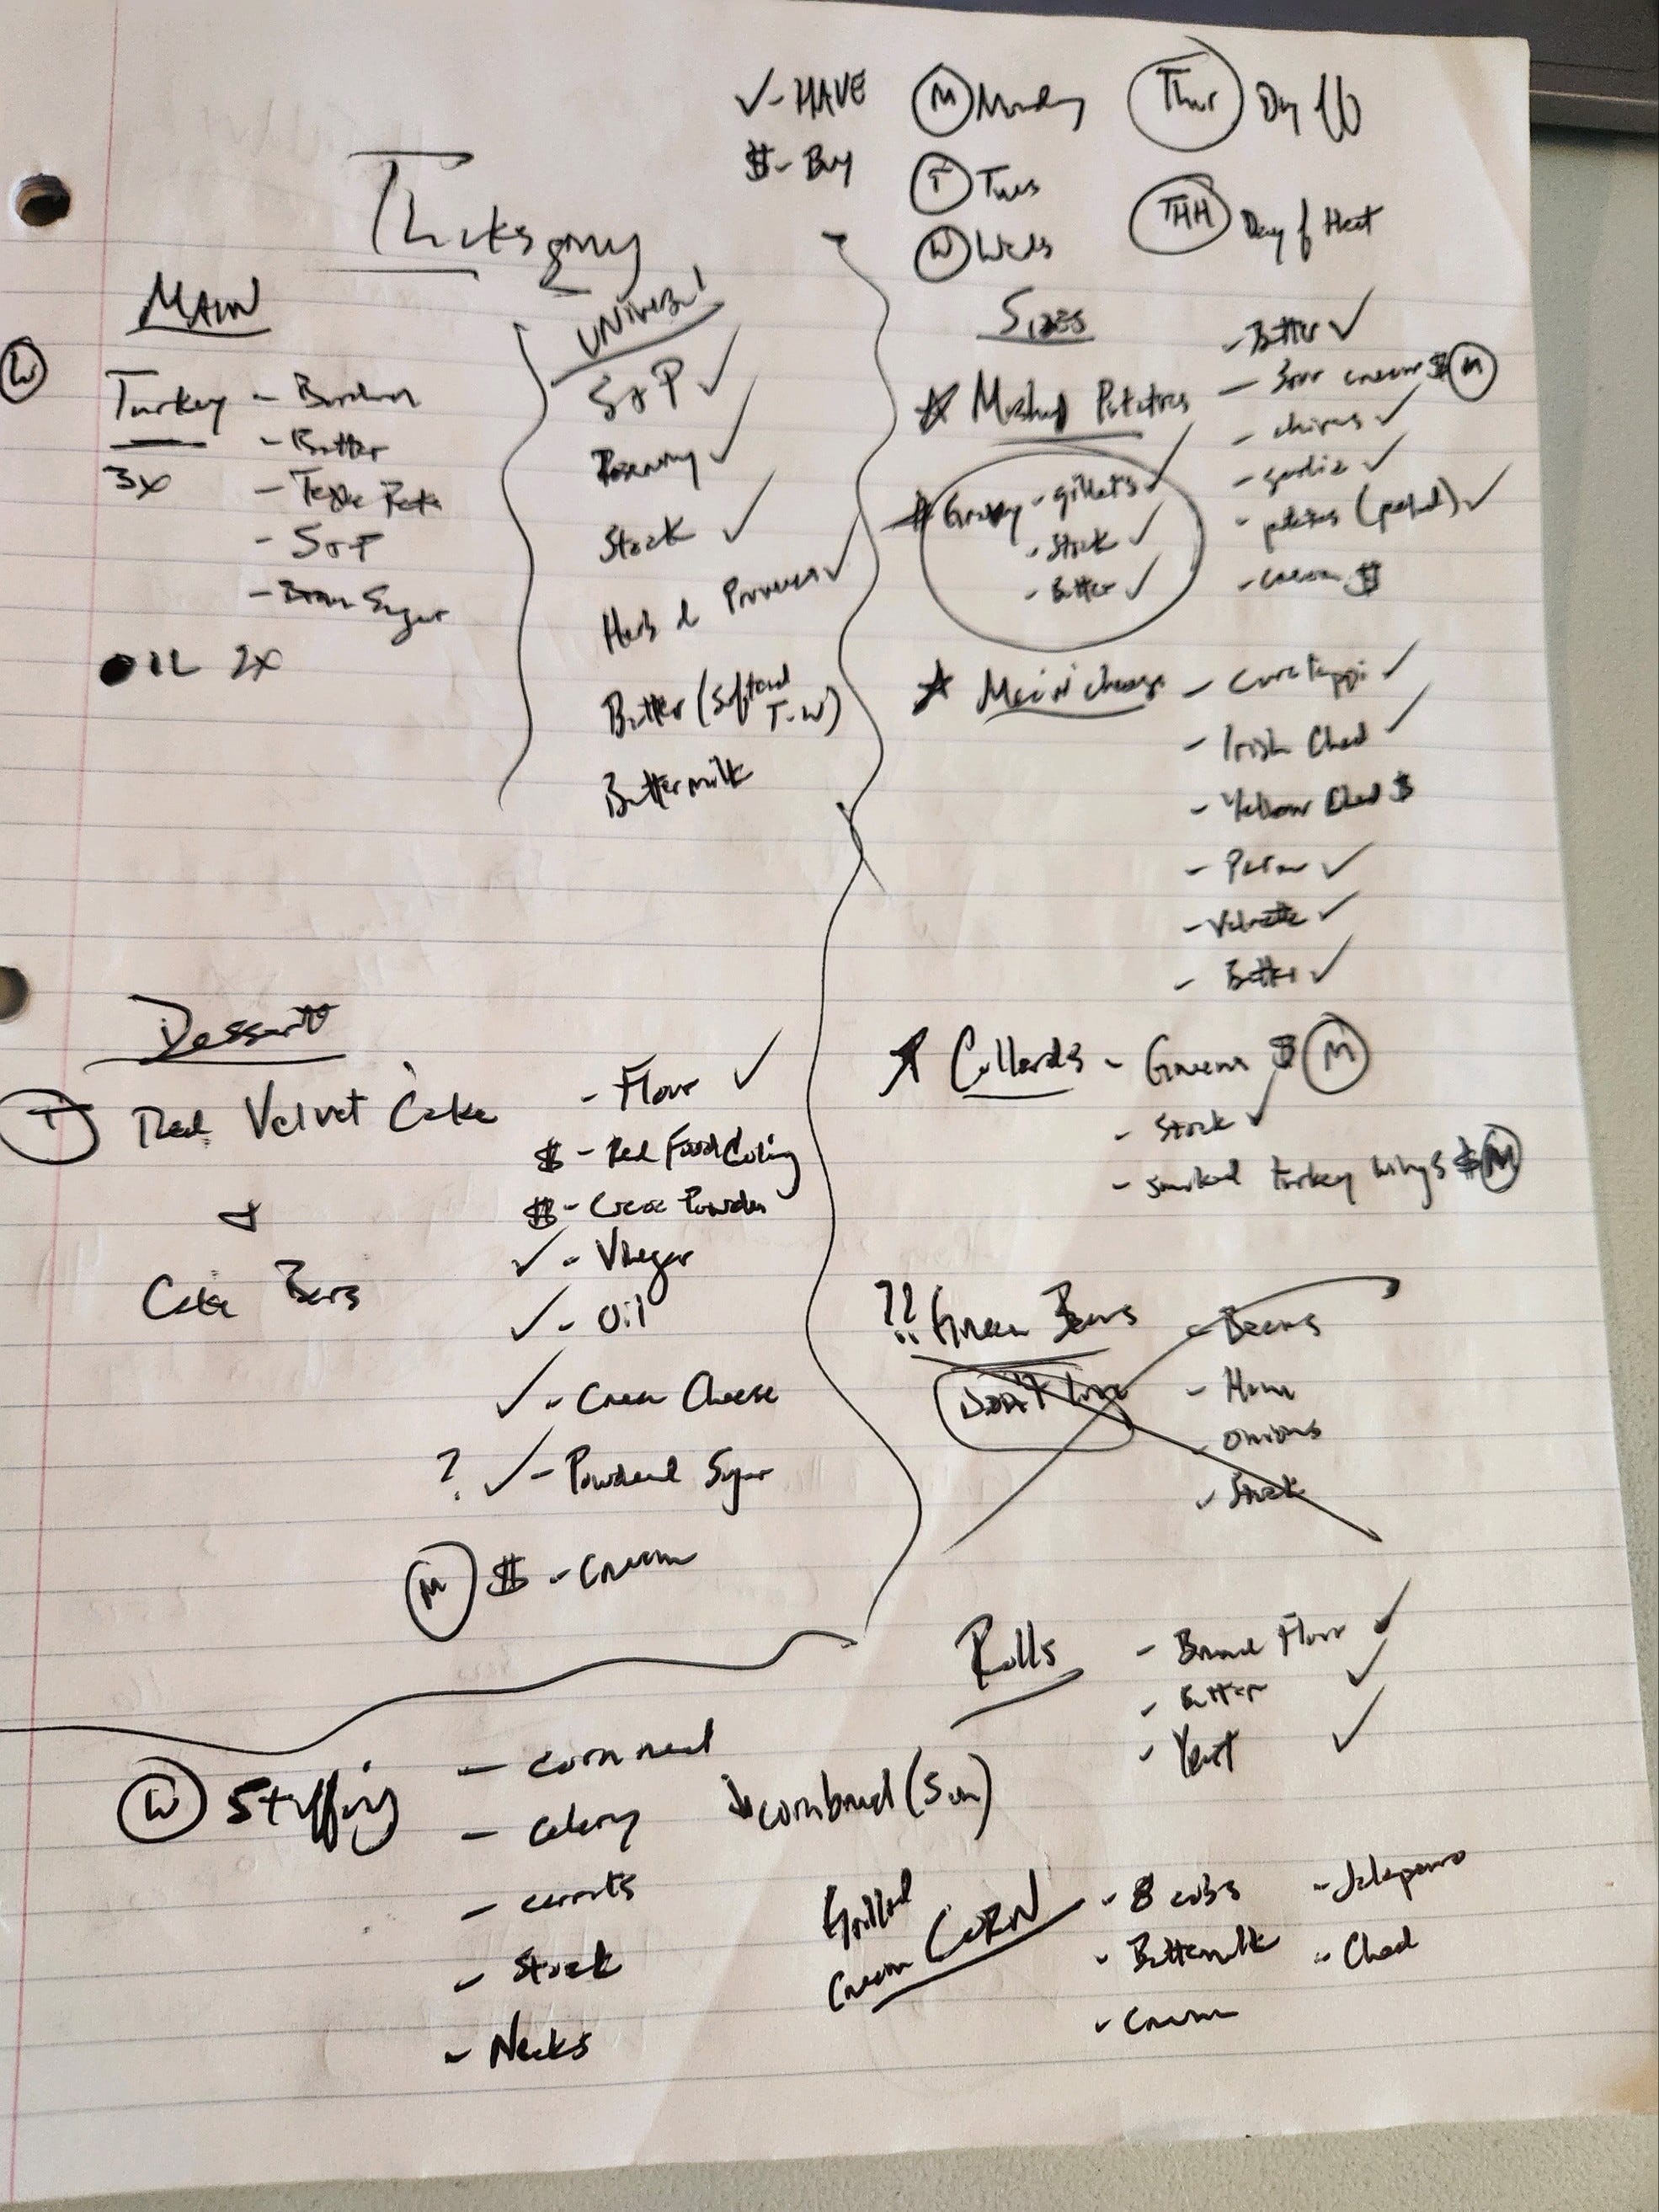 ✓- HAVE
$- Buy
(M) Monday
(T) Tues
(W) Weds
(Thur) Day of
(THH) Day of Heat
Thanksgiving
MAIN
(W)
Turkey
3x
- Butter
- S & P
- Brown Sugar
OIL 2x
UNIVERSAL
S & P ✓
Rosemary ✓
Stock ✓
Herb d Provence ✓
Butter (Softened T-W)
Buttermilk
Sides
☆ Mashed Potatoes
- Butter ✓
- Sour cream $ (M)
- chives ✓
- garlic ✓
- potatoes (peeled) ✓
- cream $
☆ Gravy - gibblets ✓
- Stock ✓
- Butter ✓
☆ Mac n' cheese
- Irish Ched ✓
- Yellow Ched $
- Parm ✓
- Velveeta ✓
- Butter ✓
☆ Collards - Greens $ (M)
- Stock ✓
- smoked turkey wings $ (M)
?? Green Beans
DON'T Love
- Beans
- Ham
- onions
- Stock
Rolls
- Bread Flour ✓
- Butter ✓
- Yeast ✓
Dessert
(T) Red Velvet Cake
&
Cake Bars
- Flour ✓
$ - Red Food Coloring
$ - Cocoa Powder
✓ - Vinegar
✓ - Oil
✓ - Cream Cheese
? ✓ - Powdered Sugar
(M) $ - Cream
(W) Stuffing
- corn meal
↳ cornbread (Sun)
- celery
- carrots
- Stock
- Necks
Grilled
Cream CORN
- 8 cobs
- Buttermilk
- Cream
- Jalapeno
- Ched